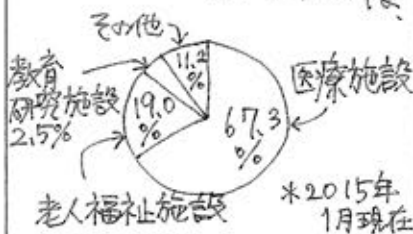 は、
その他
11.2
%
教育
研究施設
2.5%
19.0
%
67.3
%
医療施設
老人福祉施設
*2015年
1月現在